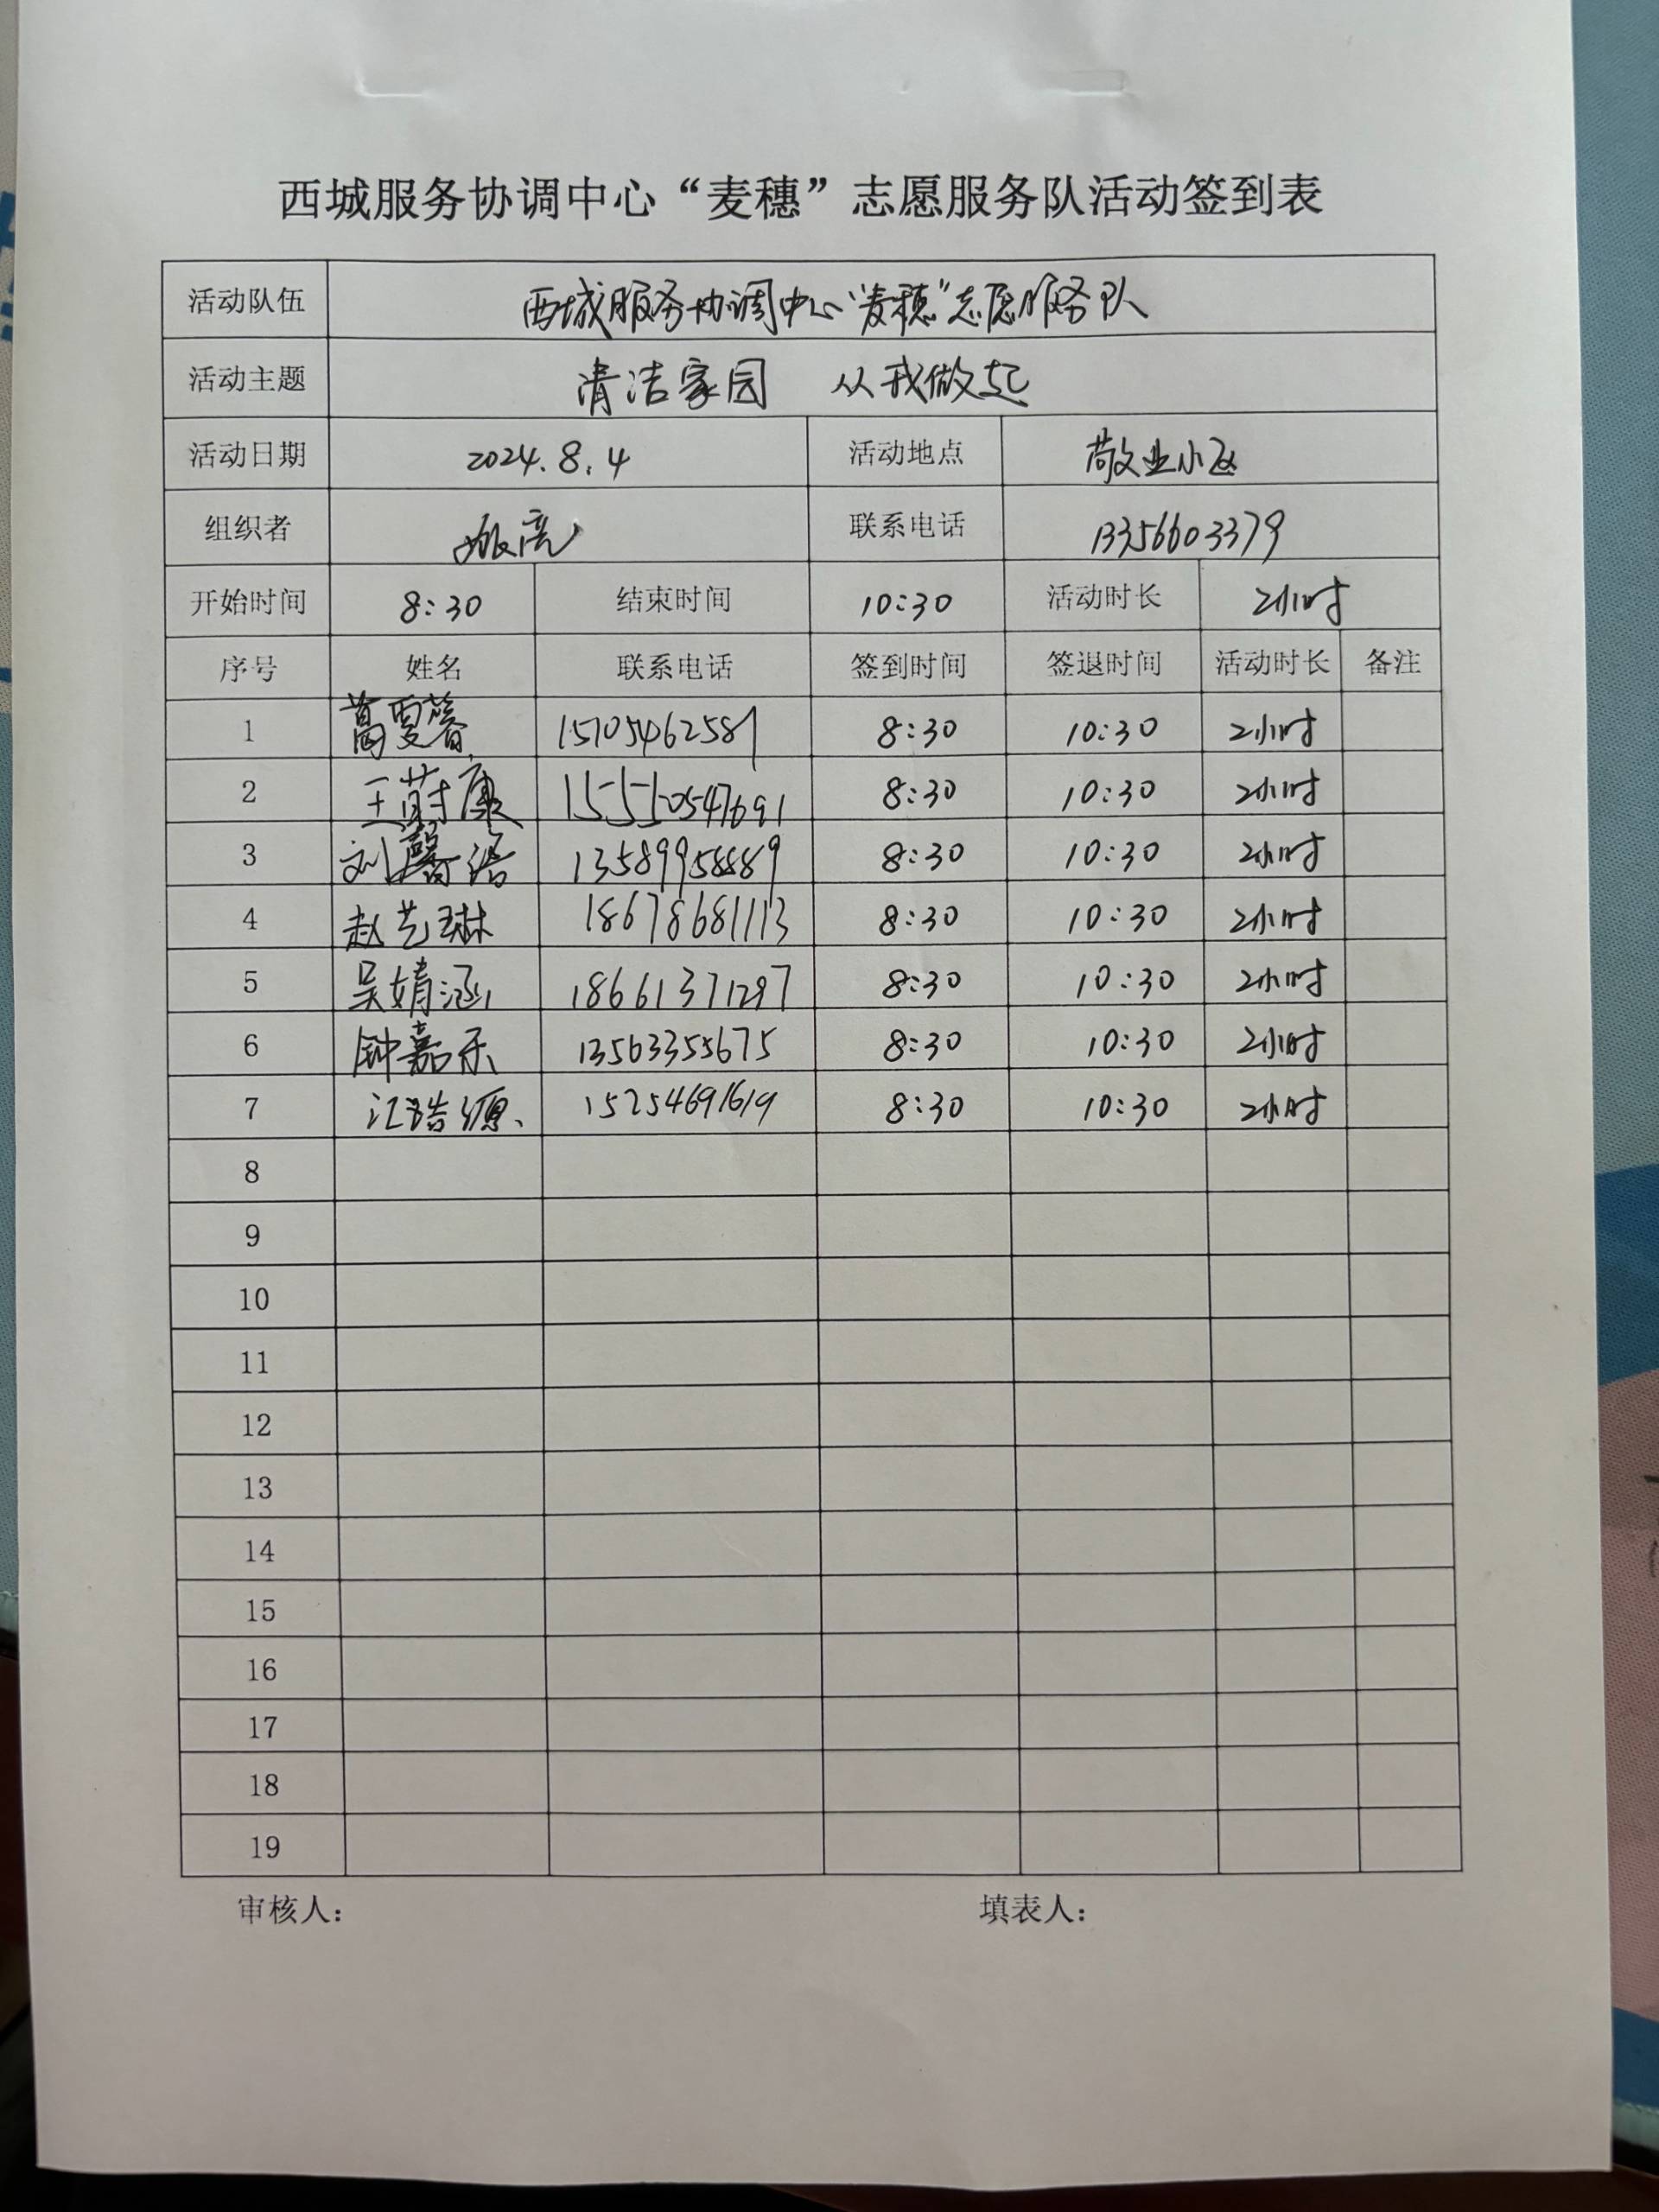 西城服务协调中心“麦穗”志愿服务队活动签到表
活动队伍 西城服务协调中心“麦穗”志愿服务队
活动主题 清洁家园 从我做起
活动日期 2024.8.4 活动地点 敬业小区
组织者 联系电话 13356603379
开始时间 8:30 结束时间 10:30 活动时长 2小时
序号 姓名 联系电话 签到时间 签退时间 活动时长 备注
1 葛夏馨 15705462581 8:30 10:30 2小时
2 王蔚康 15550547691 8:30 10:30 2小时
3 刘馨语 13589958889 8:30 10:30 2小时
4 赵艺琳 18678681113 8:30 10:30 2小时
5 吴婧涵 18661371297 8:30 10:30 2小时
6 钟嘉乐 13563355675 8:30 10:30 2小时
7 江浩源 15254691619 8:30 10:30 2小时
8
9
10
11
12
13
14
15
16
17
18
19
审核人： 填表人：